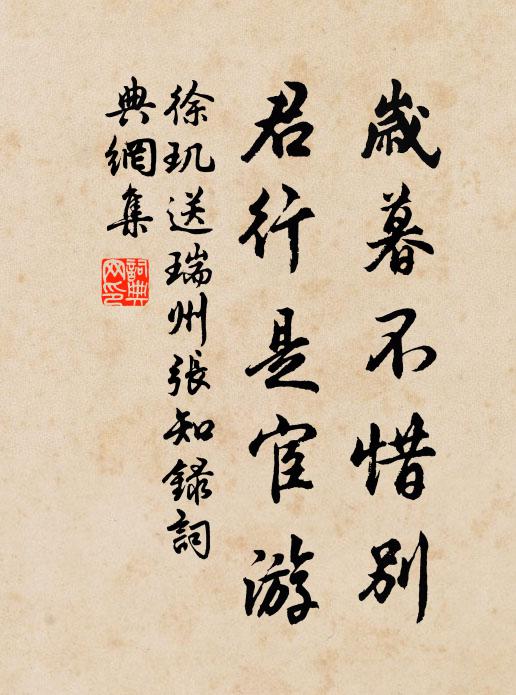 歲暮不惜別
君行是宦游
徐玑送瑞州張知録詞
典網集
詞典
网印